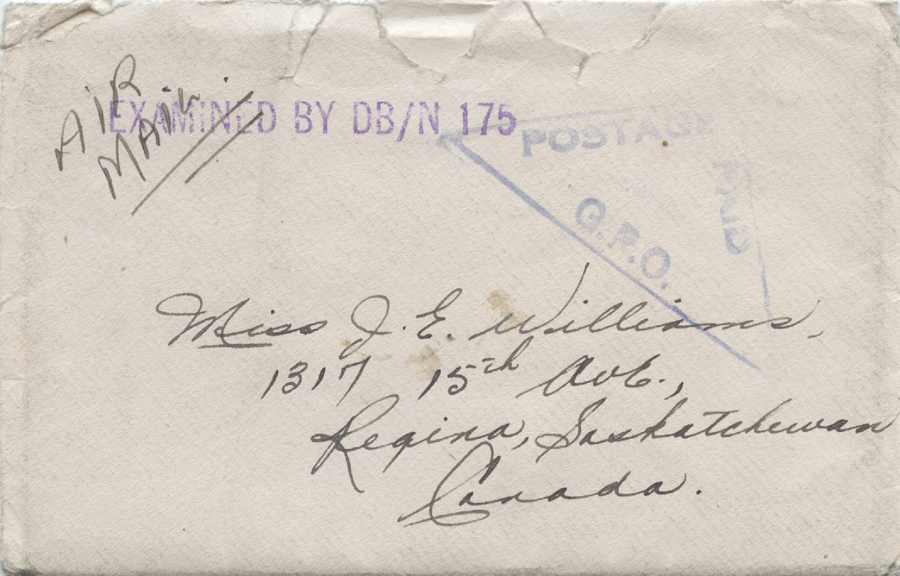 AIR
MAIL.
EXAMINED BY DB/N 175
POSTAGE
PAID
G.P.O.
Miss J. E. Williams,
1317 15th Ave.,
Regina, Saskatchewan
Canada.